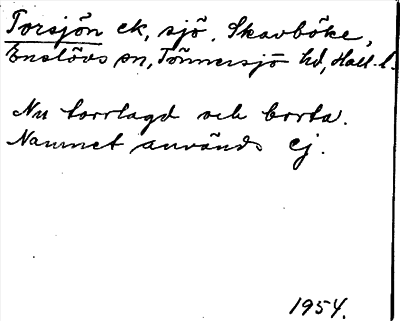 Torsjön ek, sjö. Skavböke,
Enslövs sn, Tönnersjö hd, Hall. l.
Nu torrlagd och borta.
Namnet används ej.
1954.